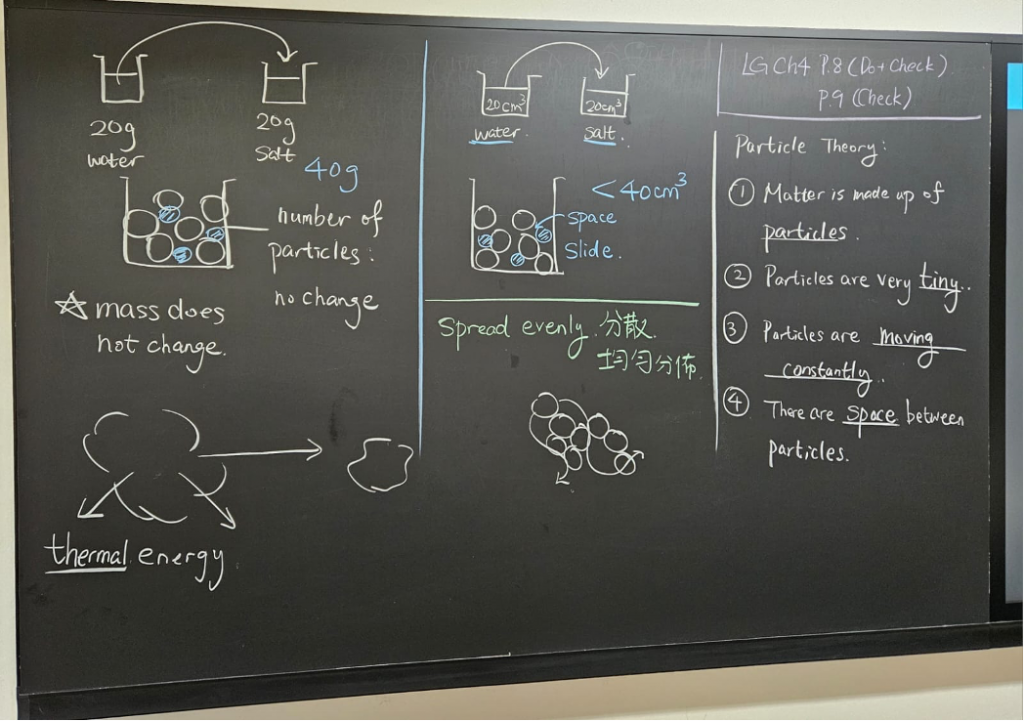 20g
water
20g
salt
40g
number of
particles:
no change
☆ mass does
not change.
thermal energy
20cm³
water.
20cm³
salt.
<40cm³
space
slide.
Spread evenly. 分散.
均勻分佈.
LG Ch4 P.8 (Do + Check)
P.9 (Check)
Particle Theory:
① Matter is made up of
particles.
② Particles are very tiny..
③ Particles are moving
constantly.
④ There are space between
particles.